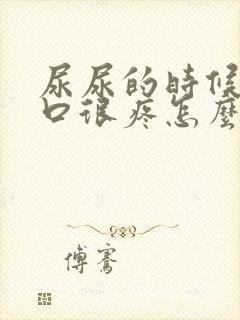 尿尿的時候
口很疼怎麼
傅騫